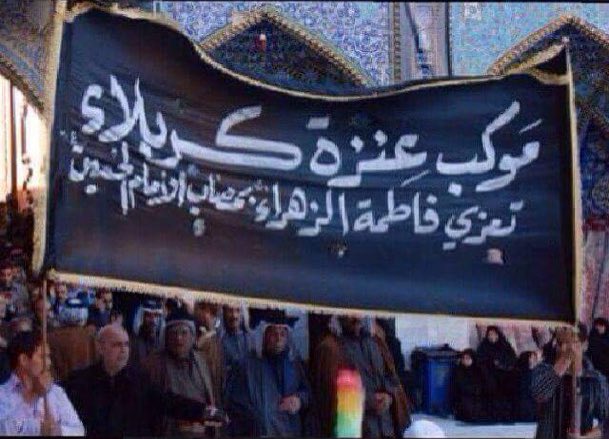 مَوكب عِنزة كربلاء
تعزي فاطمة الزهراء بمصاب الإمام الحسين